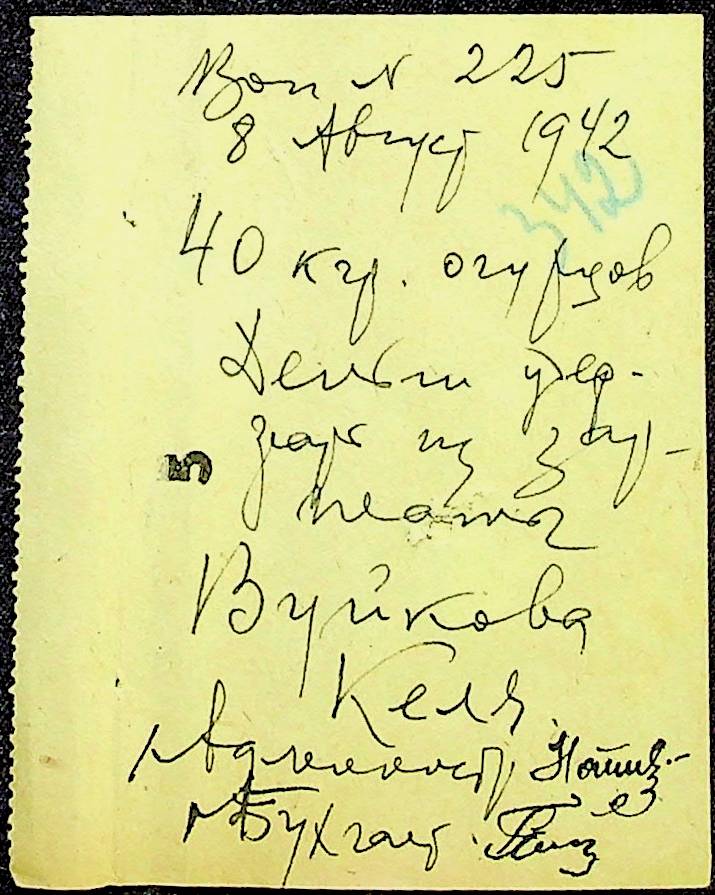 Бон N 225
8 Август 1942
342
40 кгр. огурцов
Деньги удер-
жат из зар-
платы
5
Вуйкова
Келя.
Администр.
Бухгалт.